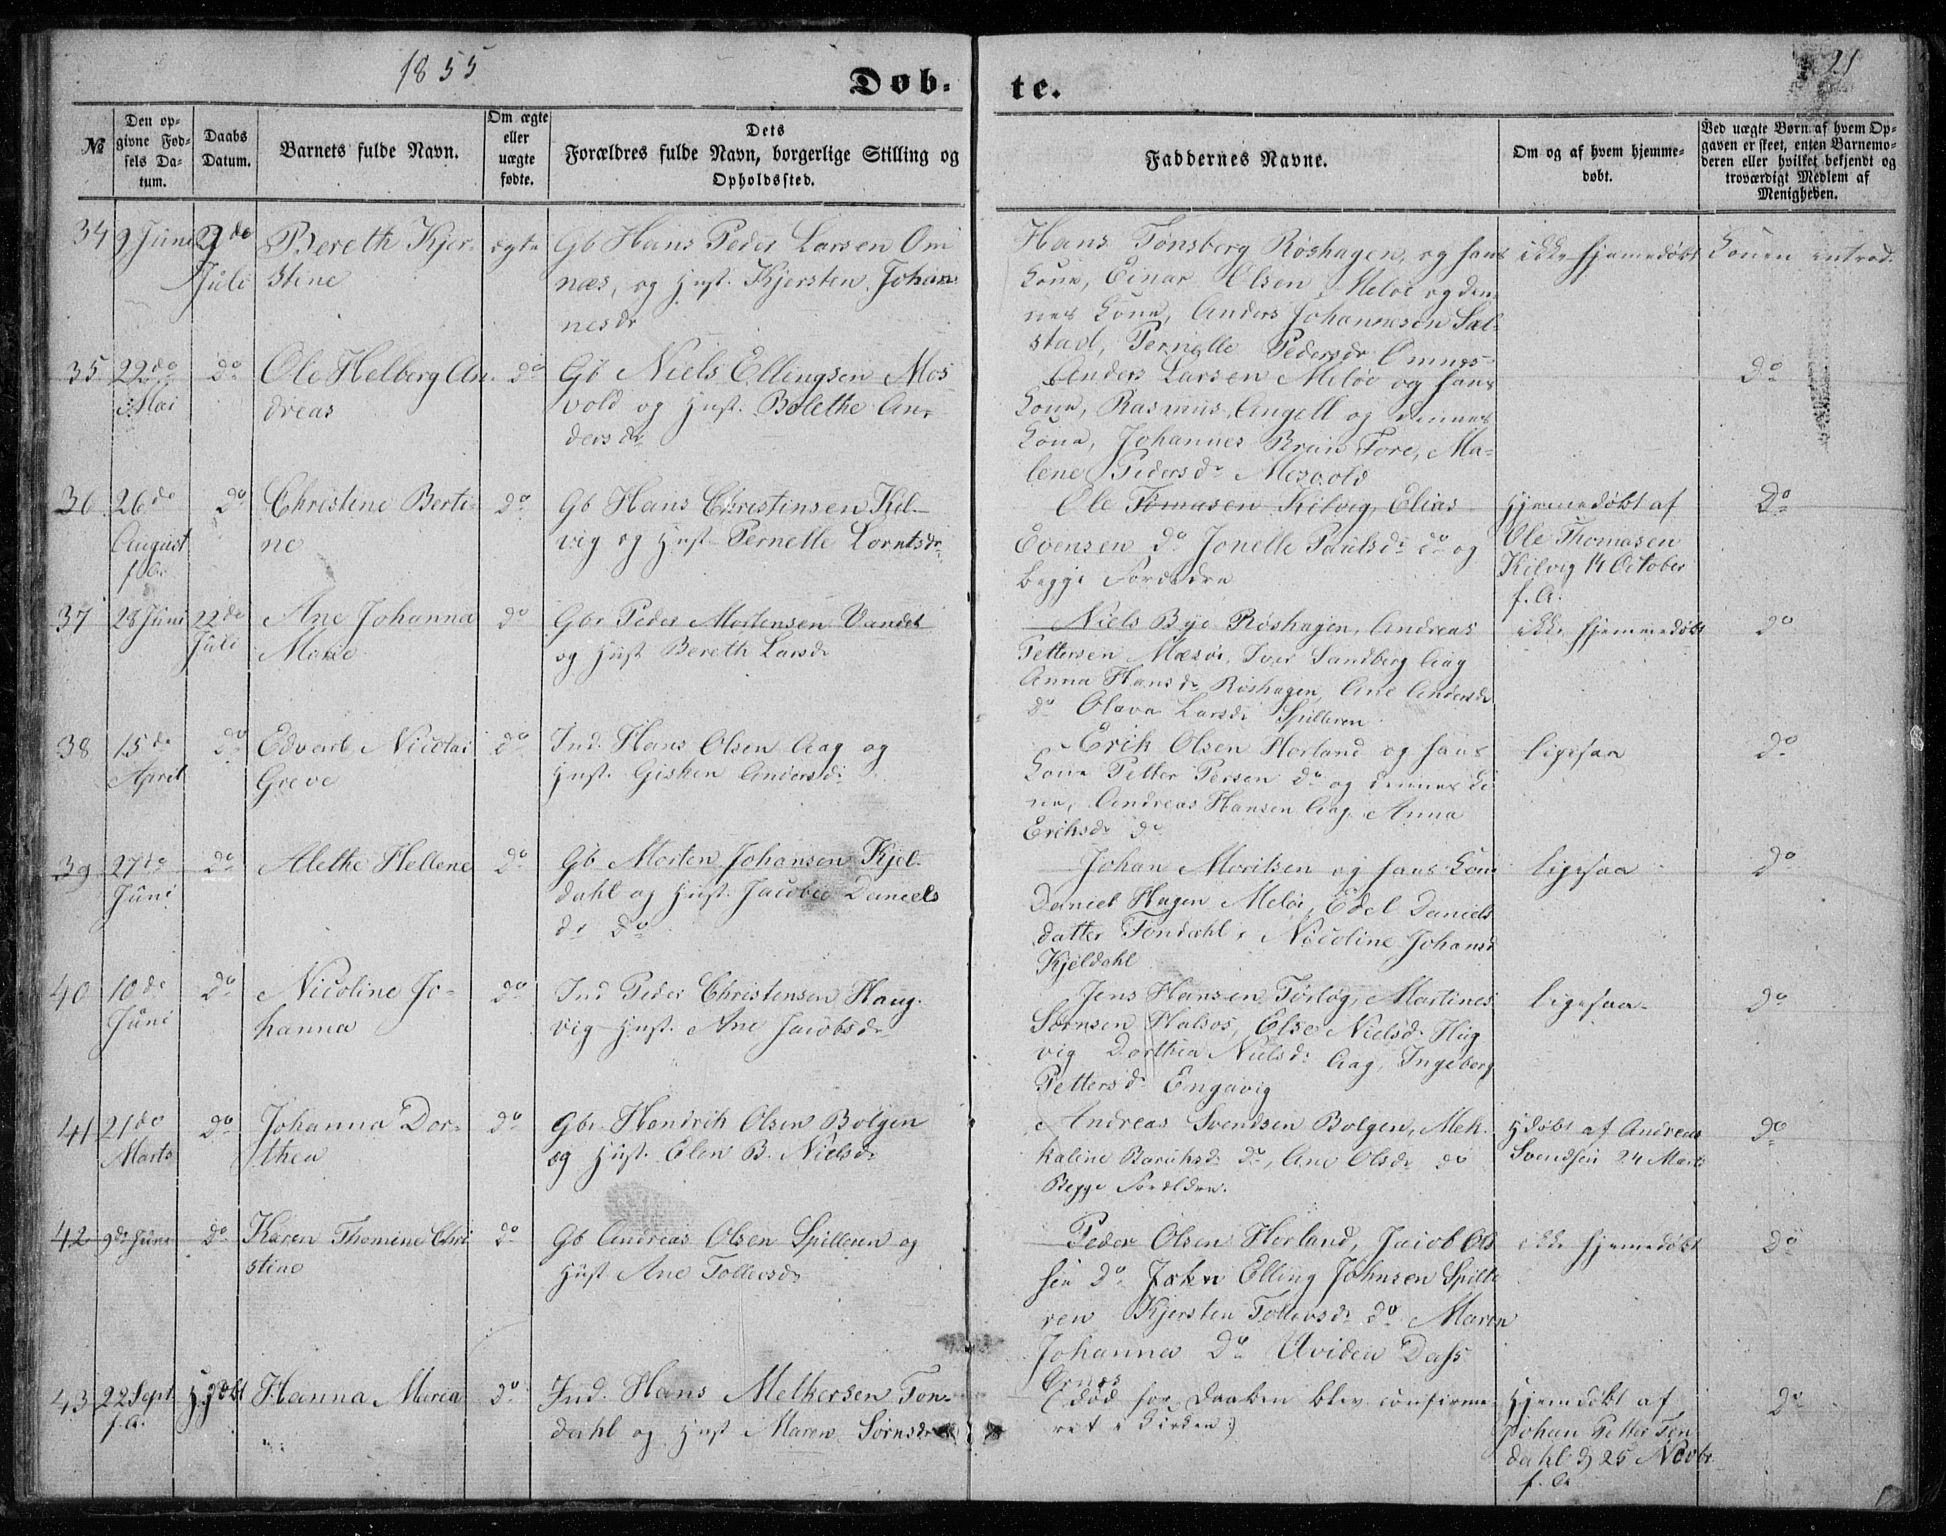 1855
21
Døb-
te.
№
Den op-
givne Fød-
sels Da-
tum.
Daabs
Datum.
Barnets fulde Navn.
Om ægte
eller
uægte
fødte.
Dets
Forældres fulde Navn, borgerlige Stilling og
Opholdssted.
Faddernes Navne.
Om og af hvem hjemme-
døbt.
Ved uægte Børn af hvem Op-
gaven er skeet, enten Barnemo-
deren eller hvilket bekjendt og
troværdigt Medlem af
Menigheden.
34
9 Juni
9de
Juli
Bereth Kjer-
stine
ægte
Gb Hans Peder Larsen Om
næs, og Hust. Kjersten Johan
nesdr
Hans Tønsberg Røshagen, og hans
Kone, Einar Olsen, Meløe og den-
nes Kone, Anders Johannesen Sæl-
stad, Pernelle Pedersdr Omnes
ikke hjemmedøbt
Konen introd.
35
22de
Mai
do
Ole Helberg An-
dreas
do
Gb Niels Ellingsen Mos-
vold og Hust. Bolethe An-
dersdr
Anders Larsen Meløe og hans
Kone, Rasmus Angell og dennes
Kone, Johannes Brun Fore, Ma-
lene Pedersdr Mosvold
do
36
26de
August
f. A.
do
Christine Berti-
ne
do
Gb Hans Christinsen Kil-
vig og Hust Pernelle Lorntsdr
Ole Tomasen Kilvig, Elias
Evensen do Jonelle Paulsdr do og
begge Forældre
Hjemmedøbt af
Ole Thomasen
Kilvig 14 October
f. A.
do
37
28 Juni
22de
Juli
Ane Johanna
Marie
do
Gbr Peder Mortensen Vandet
og Hust Bereth Larsdr
Niels Bye Røshagen, Andreas
Pettersen Mæsøe, Iver Sandberg Aag
Anna Hansdr Røshagen, Ane Andersdr
do Olava Larsdr Spilderen
ikke hjemmedøbt
do
38
15de
April
do
Edvart Nicolai
Greve
do
Ind. Hans Olsen Aag og
Hust. Gisken Andersdr
Erik Olsen Horland og hans
Kone Petter Persen do og dennes Ko
ne, Andreas Hansen Aag, Anna
Eriksdr do
ligesaa
do
39
27de
Juni
do
Alethe Hellene
do
Gb Morten Johansen Kjel-
dahl og Hust. Jacobea Daniels
dr do
Johan Moritsen og hans Kone
Daniel Hagen Meløe, Edel Daniels
datter Tøndahl, Nicoline Johansdr
Kjeldahl
ligesaa
do
40
10de
Juni
do
Nicoline Jo-
hanna
do
Ind Peder Christensen Haug-
vig Hust. Ane Jacobsdr
Jens Hansen Torløg, Martines
Sørnsen Halsos, Else Nielsdr Hug
vig Dorthea Nielsdr Aag, Ingeborg
Pettersdr Engavig
ligesaa
do
41
21de
Marts
do
Johanna Dor-
thea
do
Gbr. Hendrik Olsen Bolgen
og Hust. Elen B. Nielsdr
Andreas Svendsen Bolgen, Mek-
kaline Baruksdr do, Ane Olsdr do
Begge Forældre.
Hdøbt af Andreas
Svendsen 24 Marts
do
42
9de Juni
do
Karen Thomine Chri
stine
do
Gb Andreas Olsen Spilleren og
Hust Ane Tollevsdr
Peder Olsen Horland, Jacob Ol
sen do John Elling Johnsen Spille
ren Kjersten Tollevsdr do Maren
Johanna do Uvidea Dass
Ornæs
ikke hjemmedøbt
do
43
22 Sept
f. A.
Hjdøbt
Hanna Marea
do
Ind. Hans Melkersen Ton-
dahl og Hust Maren Sørnsdr
(: død før Daaben blev confirme-
ret i Kirken :)
Hjemdøbt af
Johan Petter Ton
dahl d 25 Novbr
f. A.
do